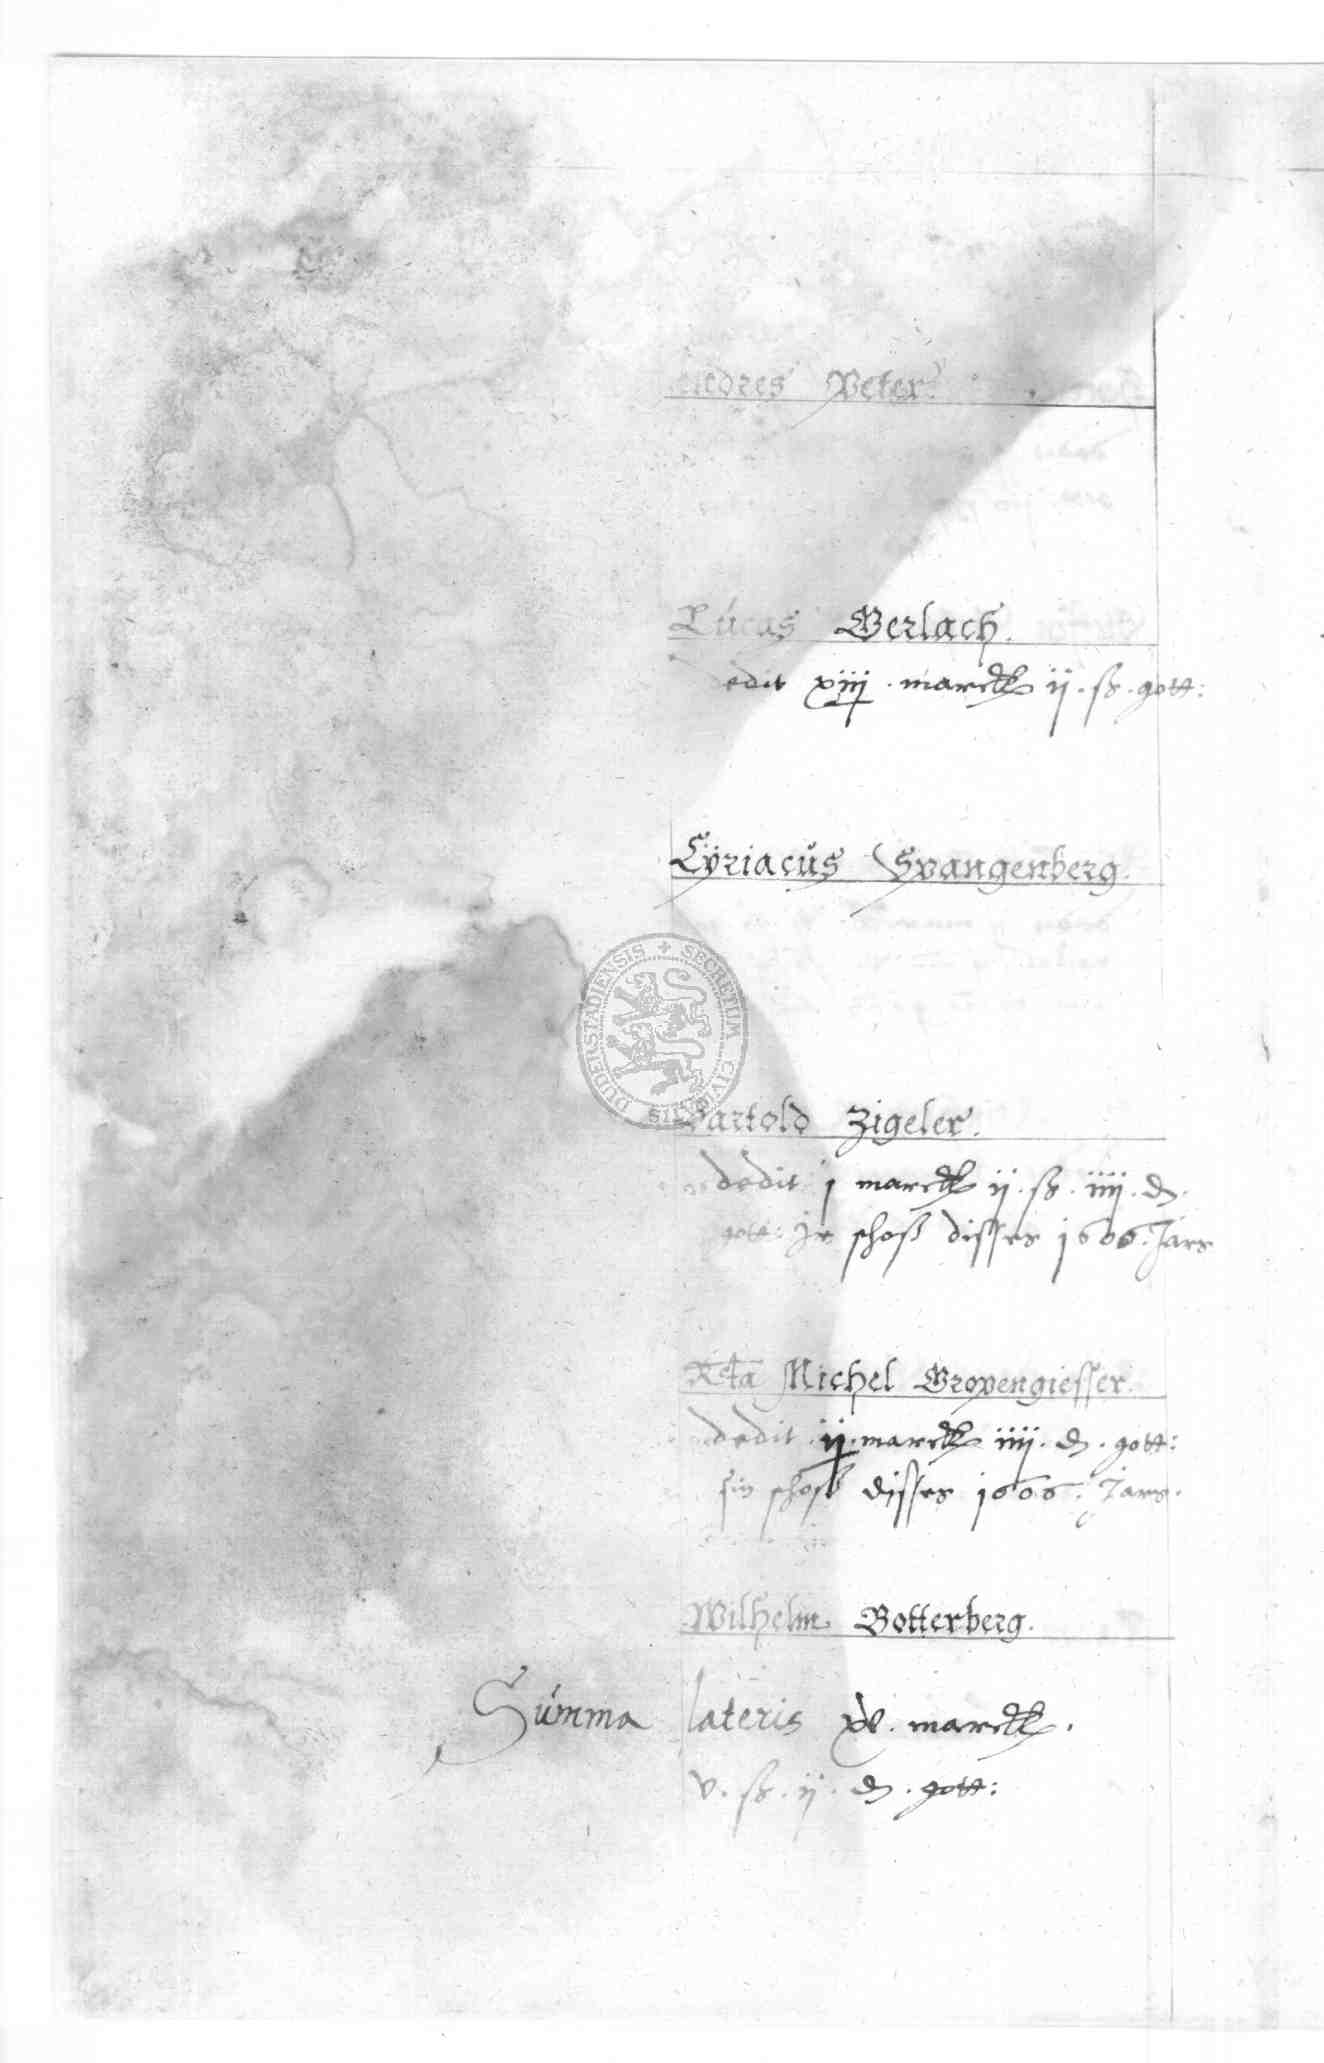 Peter.
Lúcas Gerlach.
dedit xiiij. marck ij. ß. gott:
Cÿriacůs Spangenberg.
SECRETUM CIVITATIS DUDERSTADIENSIS
Bartold Zigeler.
dedit j marck ij. ß. iiij. d.
gott: schoß disses 1606. Jars
Michel Gropengiesser.
dedit ij. marck iiij. d. gott:
sin schoß disses 1606. Jars.
Wilhelm Botterberg.
Súmma lateris xv. marck.
v. ß. ij. d. gott: